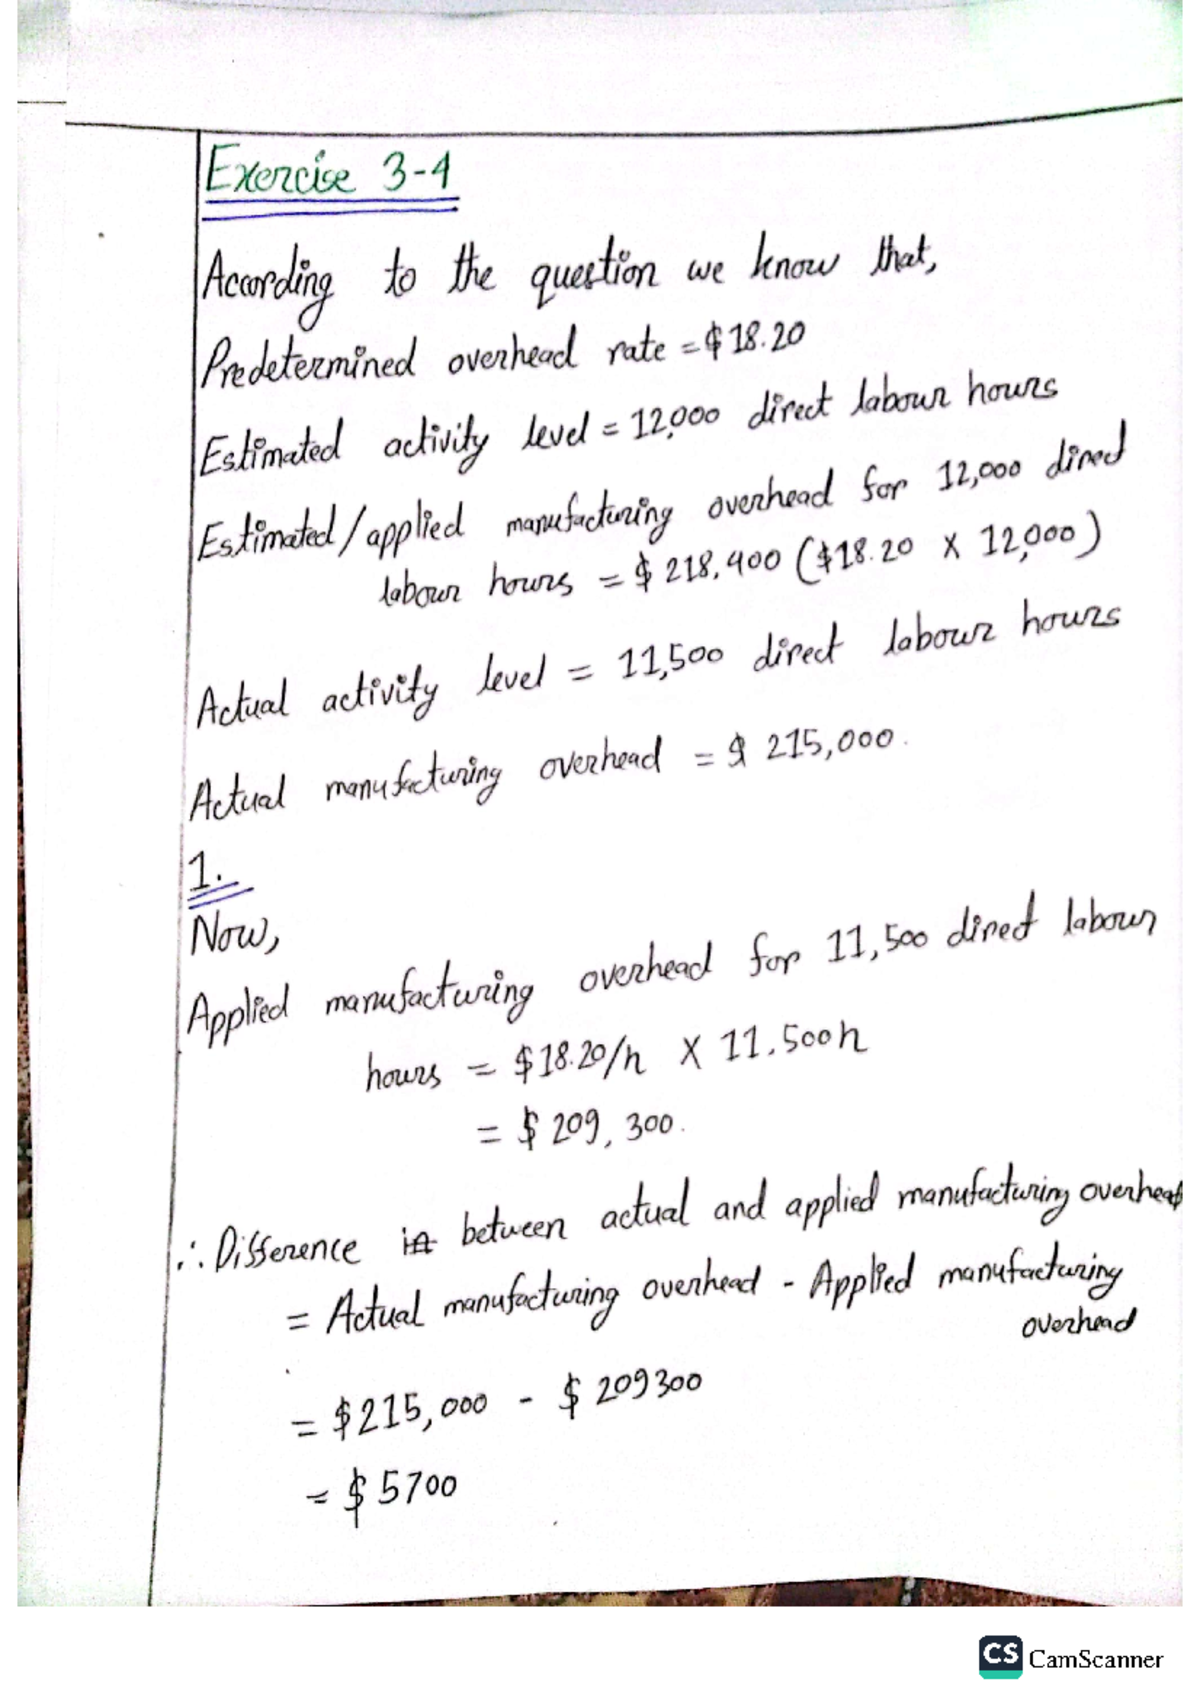 Exercise 3-4
According to the question we know that,
Predetermined overhead rate = $18.20
Estimated activity level = 12,000 direct labour hours
Estimated/applied manufacturing overhead for 12,000 direct
labour hours = $218,400 ($18.20 X 12,000)
Actual activity level = 11,500 direct labour hours
Actual manufacturing overhead = $ 215,000.
1.
Now,
Applied manufacturing overhead for 11,500 direct labour
hours = $18.20/h X 11.500h
= $ 209,300.
∴ Difference in between actual and applied manufacturing overhead
= Actual manufacturing overhead - Applied manufacturing
overhead
= $215,000 - $ 209300
= $ 5700
CS CamScanner